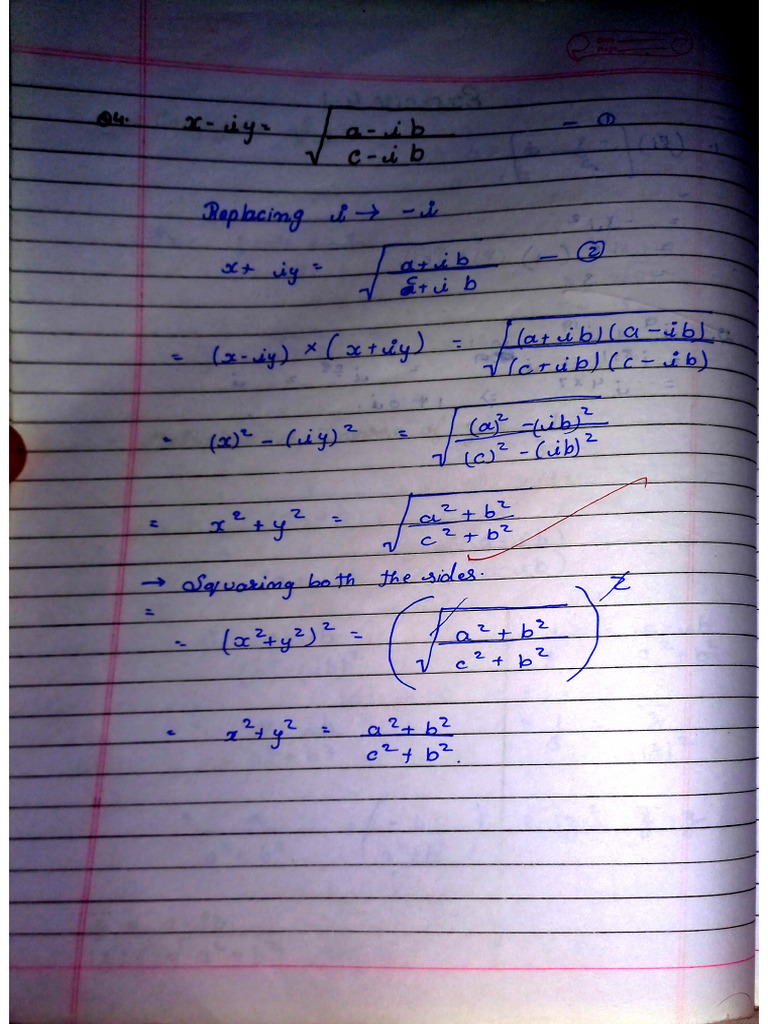 Q4. x - iy = √(a - ib / c - ib) — ①
Replacing i → -i
x + iy = √(a + ib / c + ib) — ②
= (x - iy) × (x + iy) = √((a + ib)(a - ib) / (c + ib)(c - ib))
= (x)² - (iy)² = √((a)² - (ib)² / (c)² - (ib)²)
= x² + y² = √(a² + b² / c² + b²)
→ Squaring both the sides.
=
= (x² + y²)² = (√(a² + b² / c² + b²))²
= x² + y² = a² + b² / c² + b².